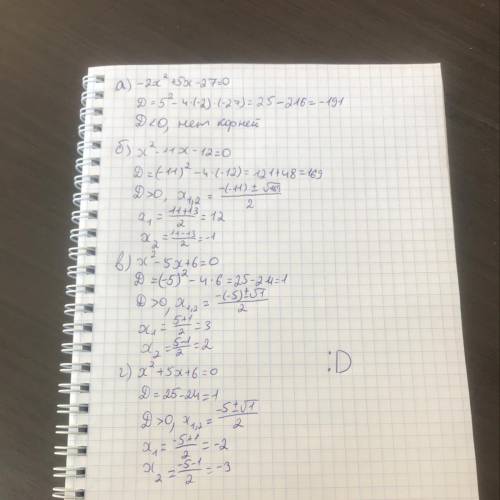 а) -2x²+5x-27=0
D=5²-4·(-2)·(-27)=25-216=-191
D<0, нет корней
б) x²-11x-12=0
D=(-11)²-4·(-12)=121+48=169
D>0, x₁,₂ = (-(-11)±√169)/2
x₁ = (11+13)/2 = 12
x₂ = (11-13)/2 = -1
в) x²-5x+6=0
D=(-5)²-4·6=25-24=1
D>0, x₁,₂ = (-(-5)±√1)/2
x₁ = (5+1)/2 = 3
x₂ = (5-1)/2 = 2
г) x²+5x+6=0
:D
D=25-24=1
D>0, x₁,₂ = (-5±√1)/2
x₁ = (-5+1)/2 = -2
x₂ = (-5-1)/2 = -3